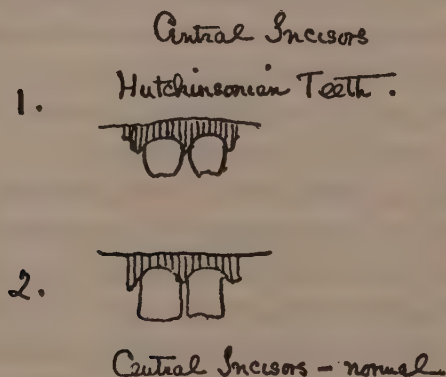 Central Incisors
1. Hutchinsonian Teeth.
2.
Central Incisors - normal